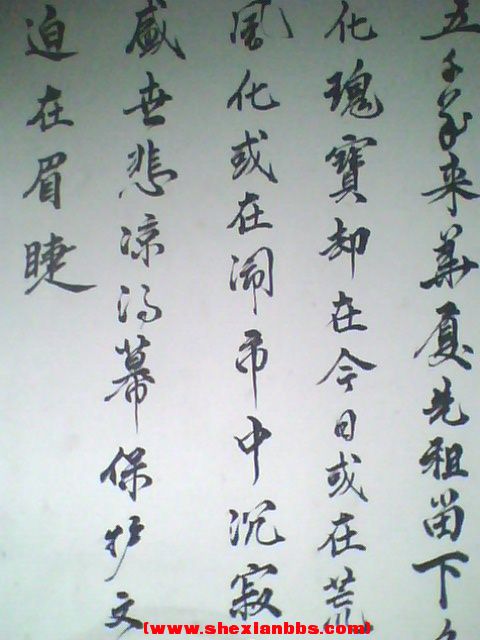 五千年来華夏先祖留下
化瑰寶却在今日或在荒
風化或在闹市中沉寂
盛世悲凉幕保护文
迫在眉睫
(www.shexianbbs.com)